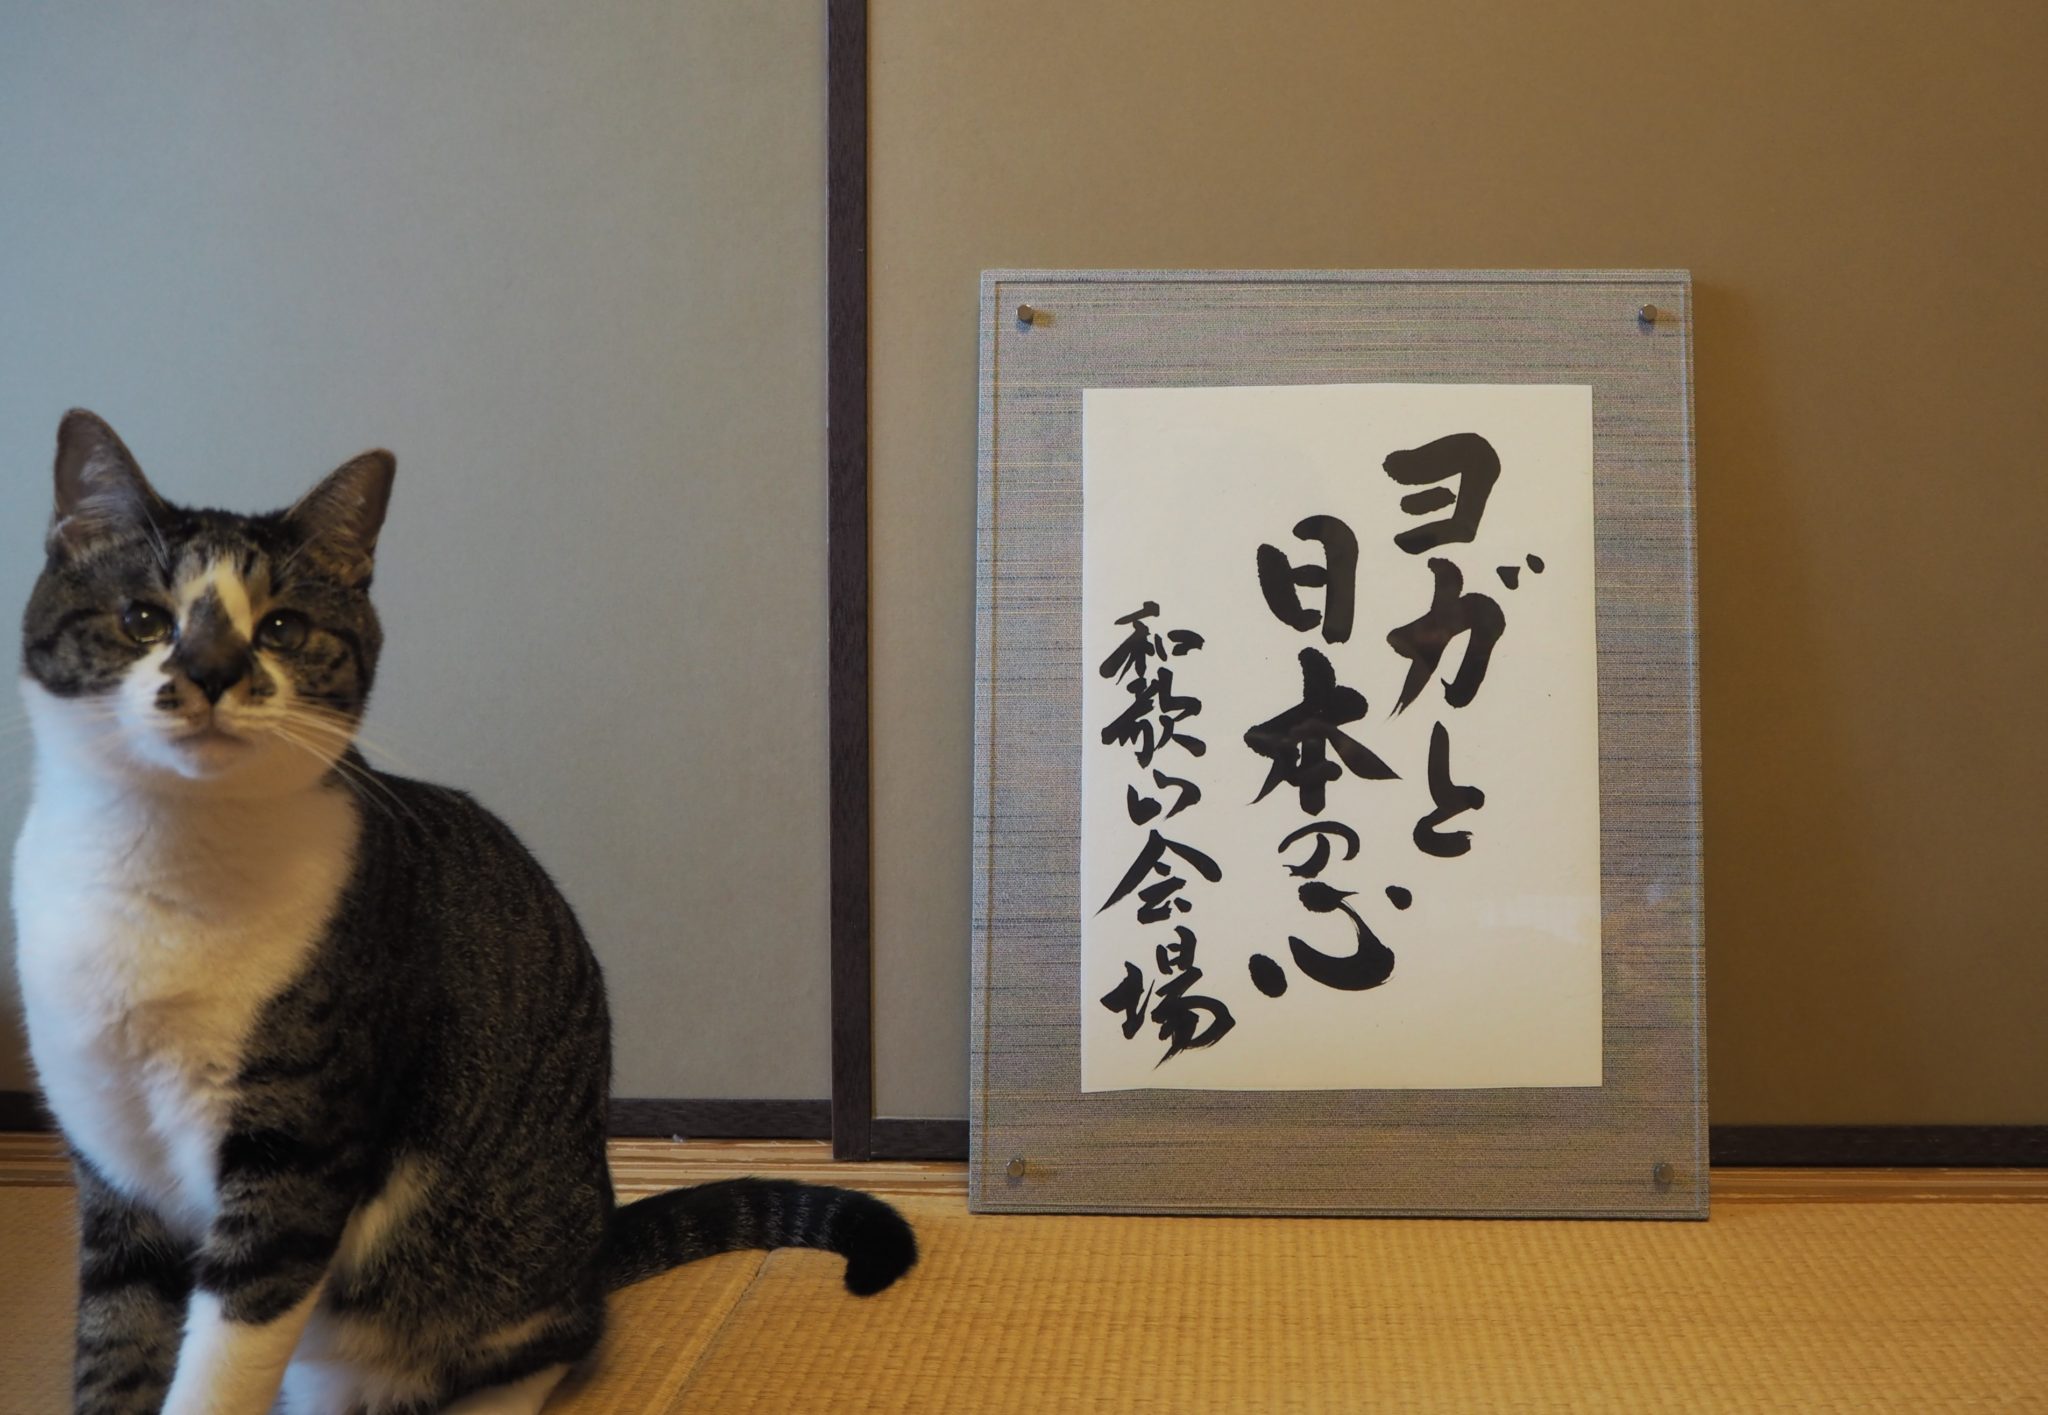 ヨガと
日本の心
和歌山会場